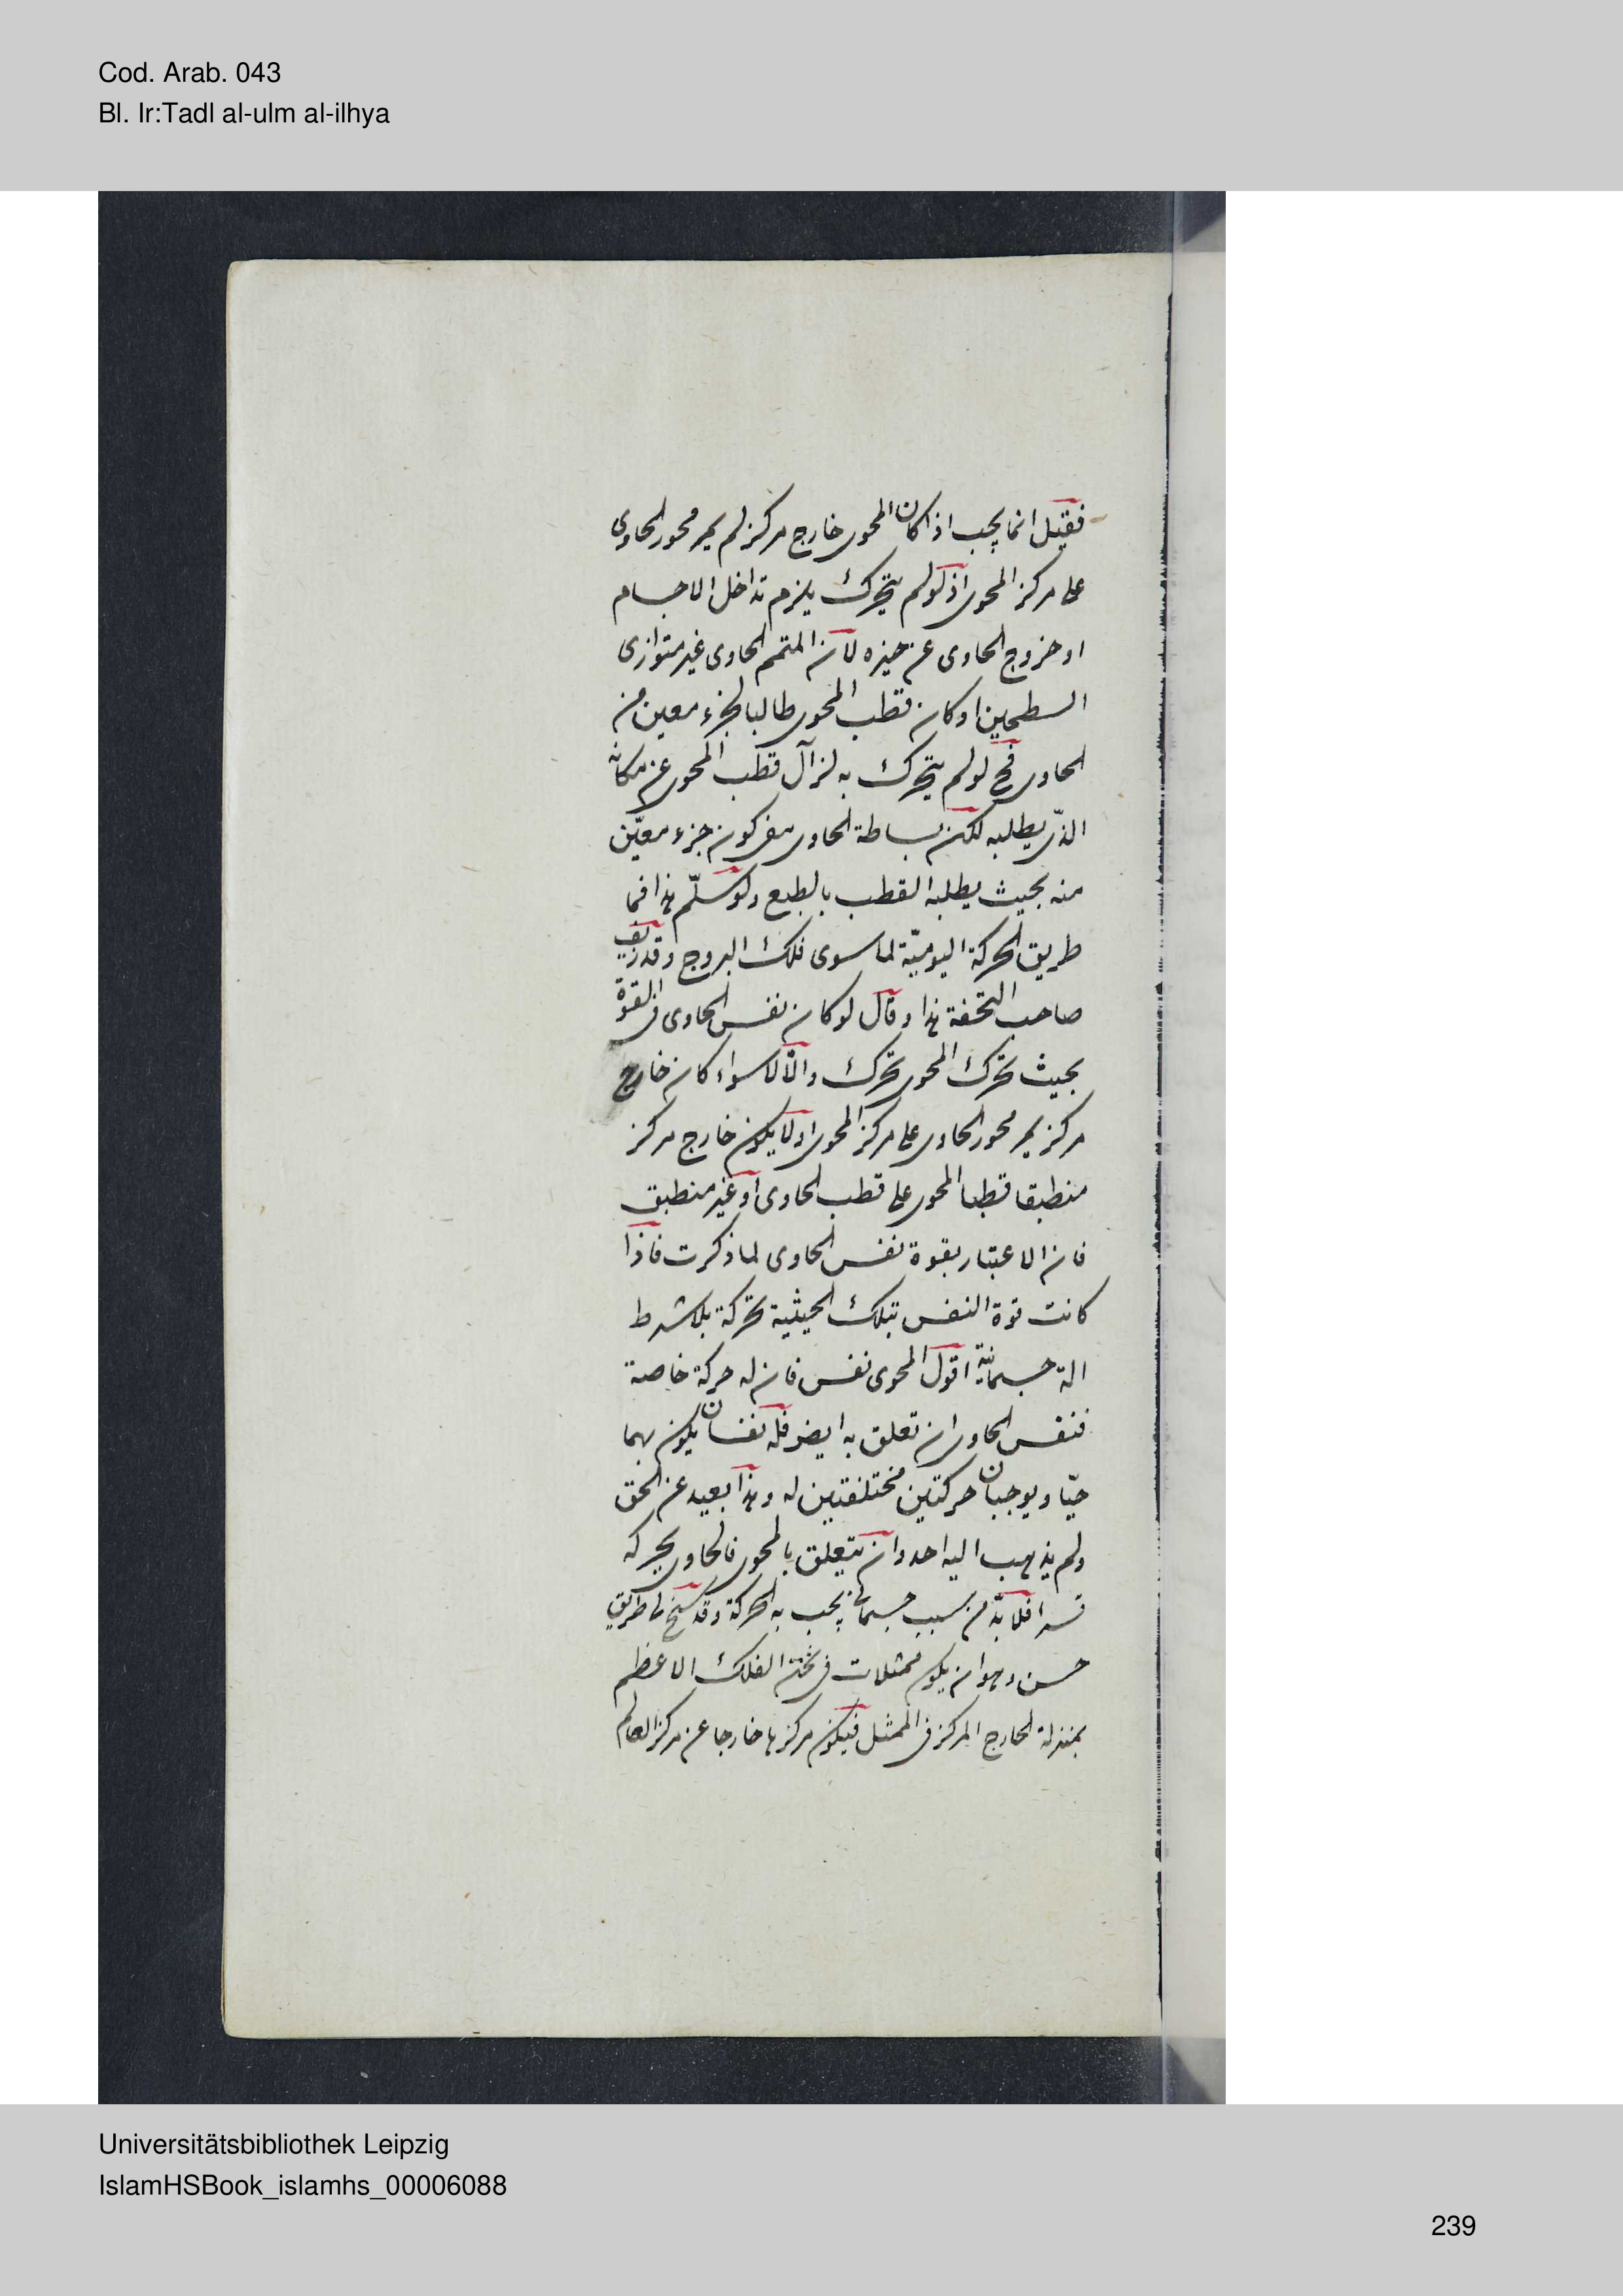 Cod. Arab. 043
Bl. Ir:Tadl al-ulm al-ilhya
فقيل انما يجب اذا كان المحوى خارج مركز لم يمر محور الحاوى
على مركز المحوى اذ لو لم يتحرك يلزم تداخل الاجسام
او خروج الحاوى عن حيزه لان المتمم الحاوى غير متوازى
السطحين او كان قطب المحوى طالبا لجزء معين من
الحاوى فح لو لم يتحرك به لزال قطب المحوى عن مكانه
الذى يطلبه لكن بساطة الحاوى كون جزء معيّن
منه بحيث يطلبه القطب بالطبع ولو سلّم هذا فما
طريق الحركة اليوميّة لما سوى فلك البروج وقد زيف
صاحب التحفة هذا وقال لو كان نفس الحاوى فى القوة
بحيث تحرك المحوى تحرك والّا لا سواء كان خارج
مركز يمر محور الحاوى على مركز المحوى او لا يكون خارج مركز
منطبقا قطبا المحوى على قطب الحاوى او غير منطبق
فان الاعتبار بقوة نفس الحاوى لما ذكرت فاذا
كانت قوة النفس بتلك الحيثية تحركه بلا شرط
الة جسمانيّة اقول المحوى نفس فان له حركة خاصة
فنفس الحاوى ان تعلق به ايضا فله نفسان يكون بهما
حيّا ويوجبان حركتين مختلفتين له وهذا بعيد عن الحق
ولم يذهب اليه احد وان تتعلق بالمحوى فالحاوى يحركه
قسرا فلا بدّ من سبب جسمانى يجب به الحركة وقد سنح لى طريق
حسن وهو ان يكون ممثلات فى ثخن الفلك الاعظم
بمنزلة الخارج المركز فى الممثل فيكون مركزها خارجا عن مركز العالم
Universitätsbibliothek Leipzig
IslamHSBook_islamhs_00006088
239